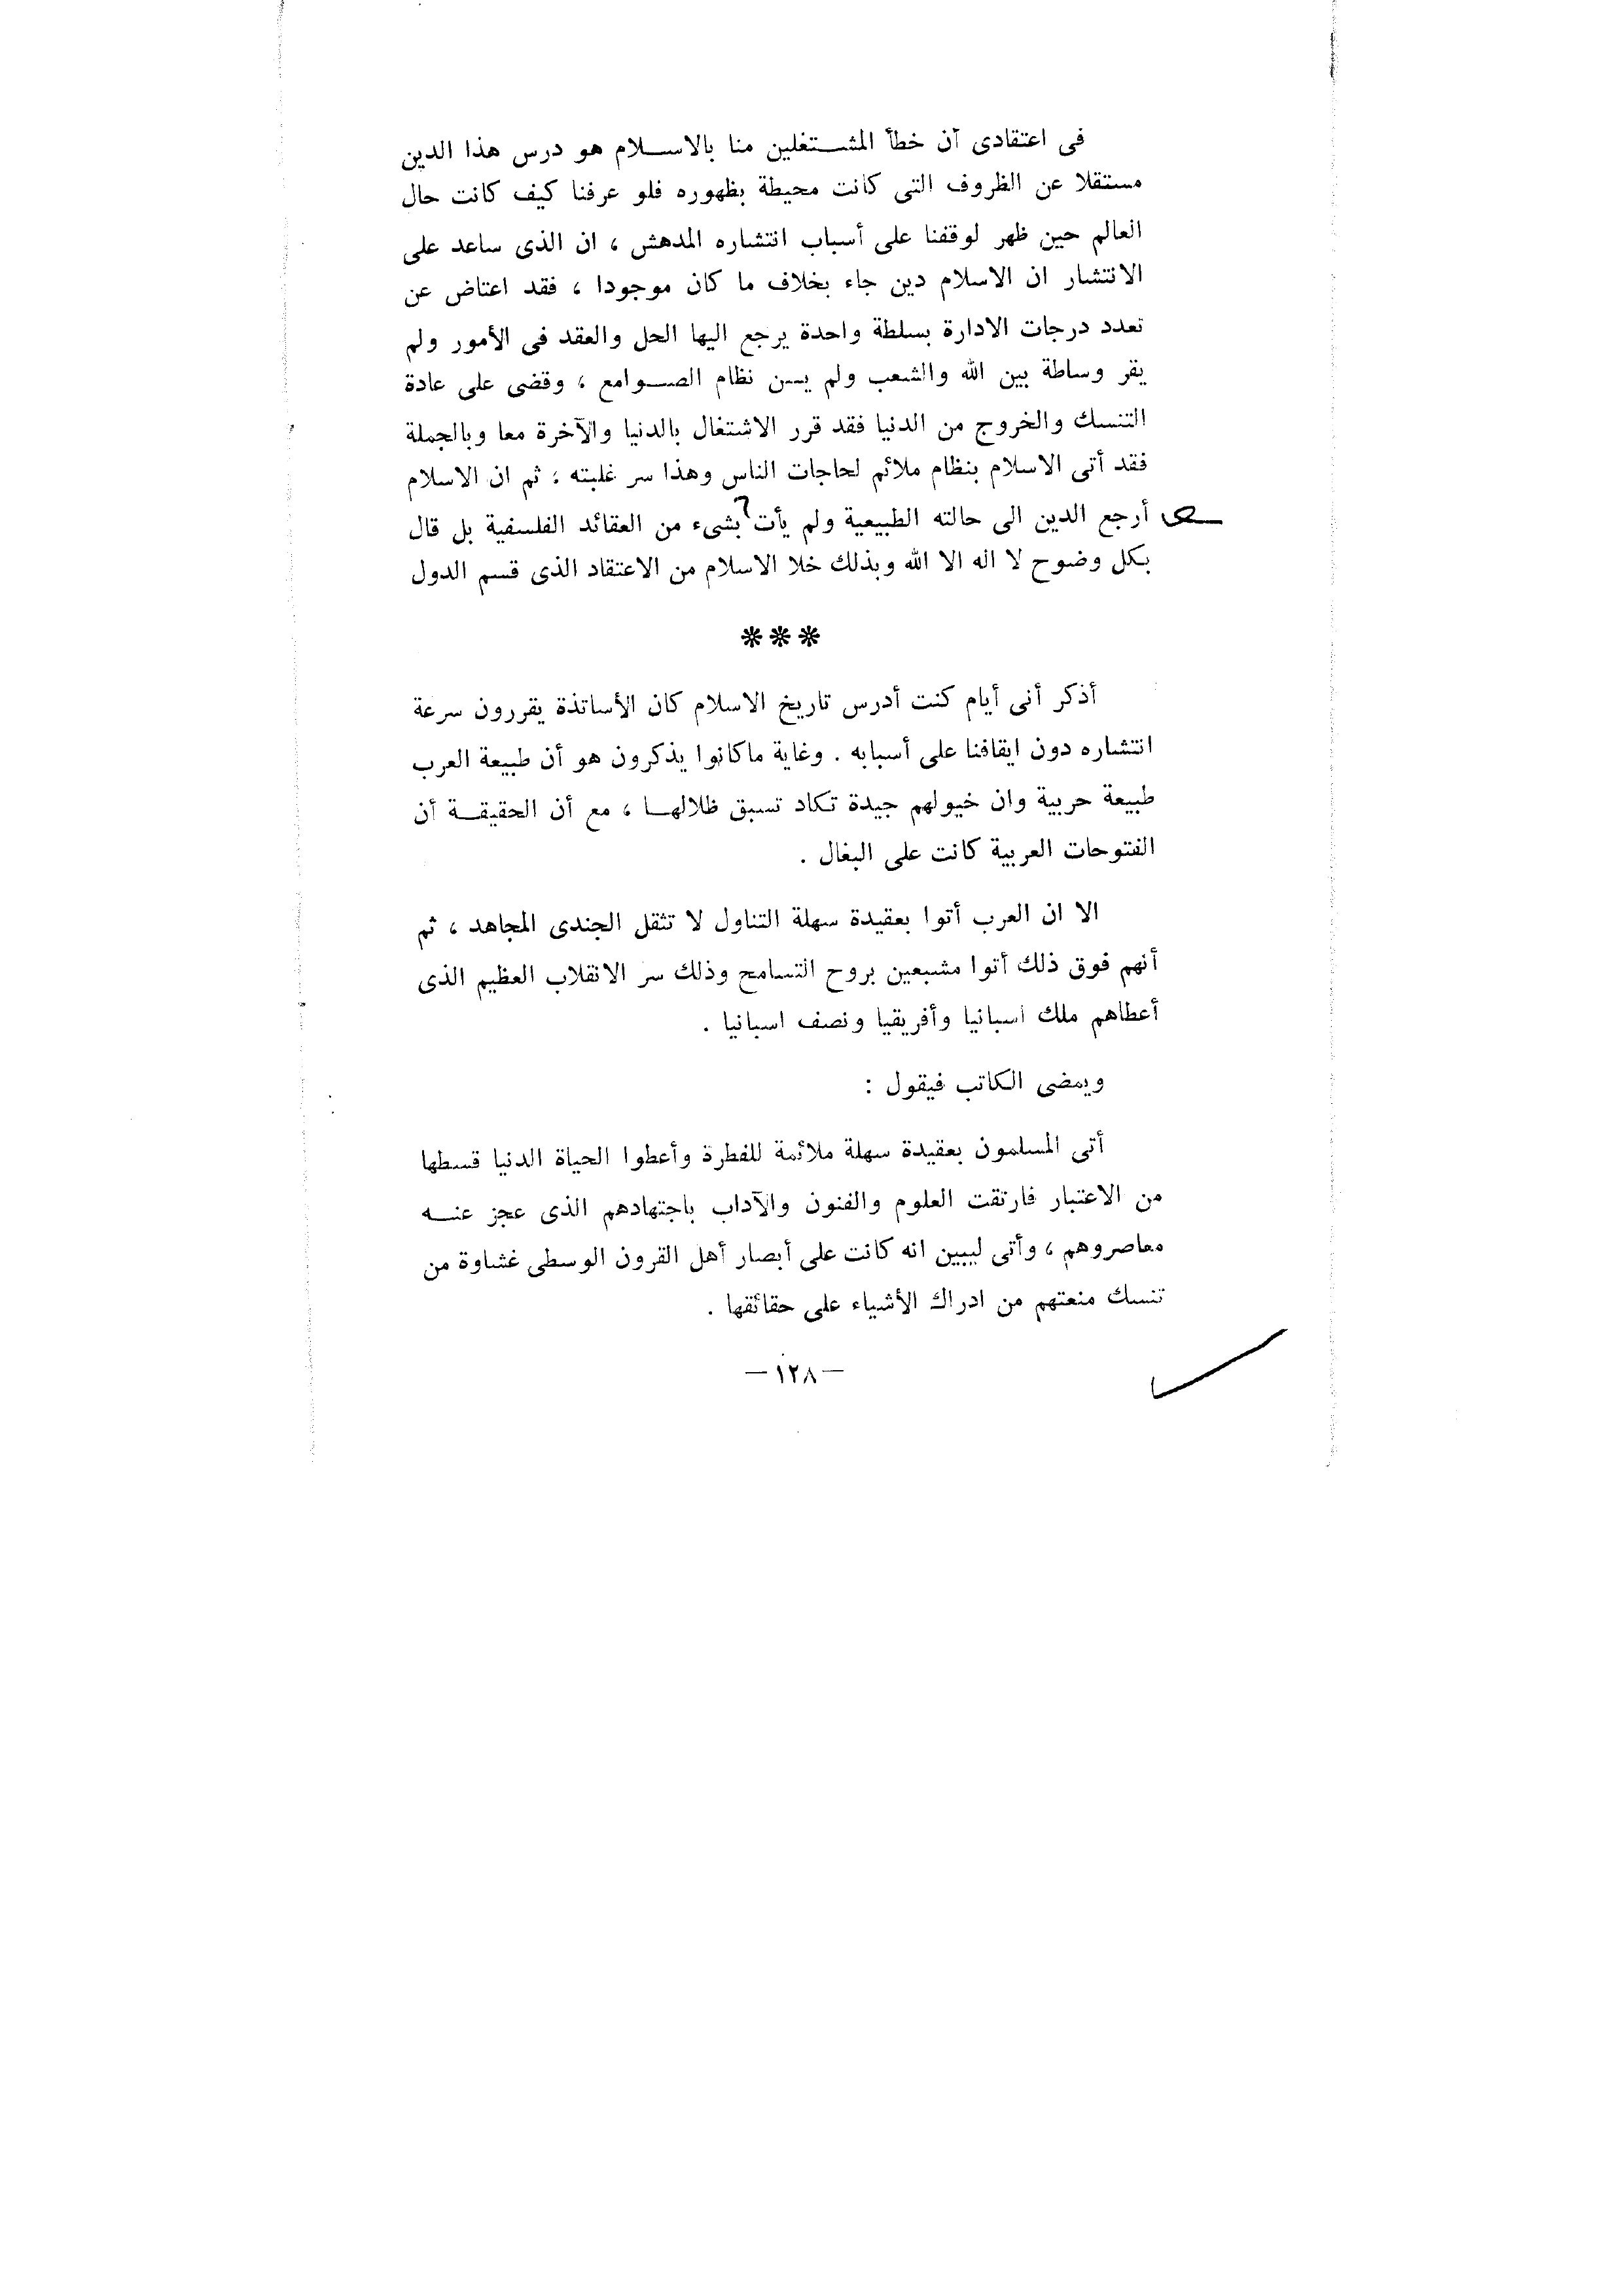 فى اعتقادى أن خطأ المشـــتغلين منا بالاســـلام هو درس هذا الدين
مستقلا عن الظروف التى كانت محيطة بظهوره فلو عرفنا كيف كانت حال
العالم حين ظهر لوقفنا على أسباب انتشاره المدهش ، ان الذى ساعد على
الانتشار ان الاسلام دين جاء بخلاف ما كان موجودا ، فقد اعتاض عن
تعدد درجات الادارة بسلطة واحدة يرجع اليها الحل والعقد فى الأمور ولم
يقر وساطة بين الله والشعب ولم يسن نظام الصـــوامع ، وقضى على عادة
التنسك والخروج من الدنيا فقد قرر الاشتغال بالدنيا والآخرة معا وبالجملة
فقد أتى الاسلام بنظام ملائم لحاجات الناس وهذا سر غلبته ، ثم ان الاسلام
أرجع الدين الى حالته الطبيعية ولم يأت بشىء من العقائد الفلسفية بل قال
بكل وضوح لا اله الا الله وبذلك خلا الاسلام من الاعتقاد الذى قسم الدول
***
أذكر أنى أيام كنت أدرس تاريخ الاسلام كان الأساتذة يقررون سرعة
انتشاره دون ايقافنا على أسبابه . وغاية ماكانوا يذكرون هو أن طبيعة العرب
طبيعة حربية وان خيولهم جيدة تكاد تسبق ظلالهـا ، مع أن الحقيقـــة أن
الفتوحات العربية كانت على البغال .
الا ان العرب أتوا بعقيدة سهلة التناول لا تثقل الجندى المجاهد ، ثم
أنهم فوق ذلك أتوا مشبعين بروح التسامح وذلك سر الانقلاب العظيم الذى
أعطاهم ملك اسبانيا وأفريقيا ونصف اسبانيا .
ويمضى الكاتب فيقول :
أتى المسلمون بعقيدة سهلة ملائمة للفطرة وأعطوا الحياة الدنيا قسطها
من الاعتبار فارتقت العلوم والفنون والآداب باجتهادهم الذى عجز عنـــه
معاصروهم ، وأتى ليبين انه كانت على أبصار أهل القرون الوسطى غشاوة من
تنسك منعتهم من ادراك الأشياء على حقائقها .
— ١٢٨ —